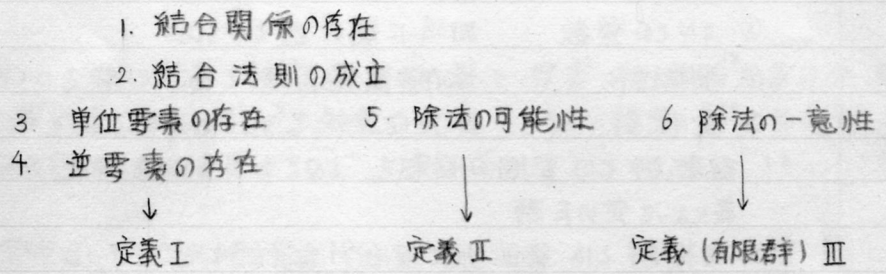 1. 結合関係の存在
2. 結合法則の成立
3. 単位要素の存在 5. 除法の可能性 6 除法の一意性
4. 逆要素の存在
↓ ↓ ↓
定義 I 定義 II 定義 (有限群) III